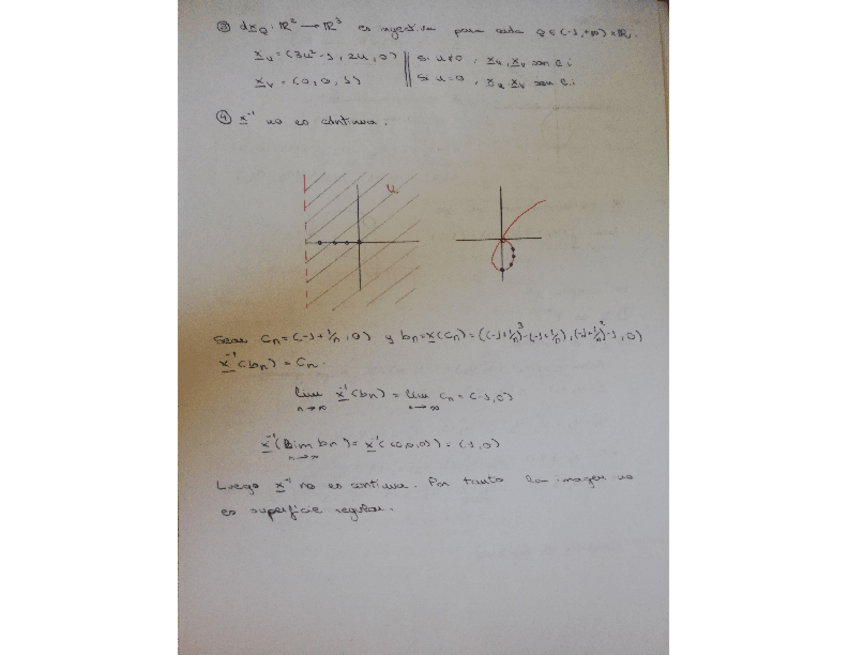 ③ dx_Q : ℝ² → ℝ³ es inyectiva para cada Q ∈ (-1,+∞)×ℝ.
x_u = (3u²-1, 2u, 0) || Si u≠0, x_u, x_v son l.i
x_v = (0, 0, 1) || Si u=0, x_u, x_v son l.i
④ x⁻¹ no es continua.
U
Sean Cn = (-1+1/n, 0) y bn = x(Cn) = ((-1+1/n)³-(-1+1/n), (-1+1/n)²-1, 0)
x⁻¹(bn) = Cn.
lim n→∞ x⁻¹(bn) = lim n→∞ Cn = (-1,0)
x⁻¹(lim n→∞ bn) = x⁻¹((0,0,0)) = (1,0)
Luego x⁻¹ no es continua. Por tanto la imagen no
es superficie regular.